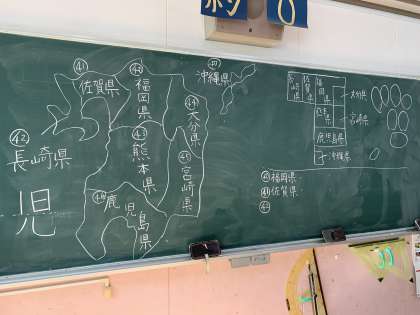 ㊶
佐賀県
㊵
福岡県
㊹
大分県
㊷
長崎県
㊸
熊本県
㊺
宮崎県
㊻
鹿児島県
児
㊼
沖縄県
長崎県
佐賀県
福岡県
大分県
熊本県
宮崎県
鹿児島県
沖縄県
㊵福岡県
㊶佐賀県
㊷